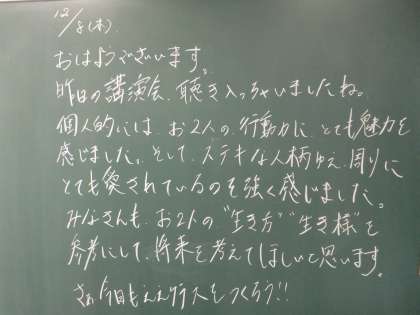 12/8(木).
おはようございます。
昨日の講演会、聴き入っちゃいましたね。
個人的には、お2人の行動力に、とても魅力を
感じました。そして、ステキな人柄ゆえ、周りに
とても愛されているのを強く感じました。
みなさんも、お2人の"生き方" "生き様"を
参考にして、将来を考えてほしいと思います。
さぁ今日もええ1日をつくろう!!